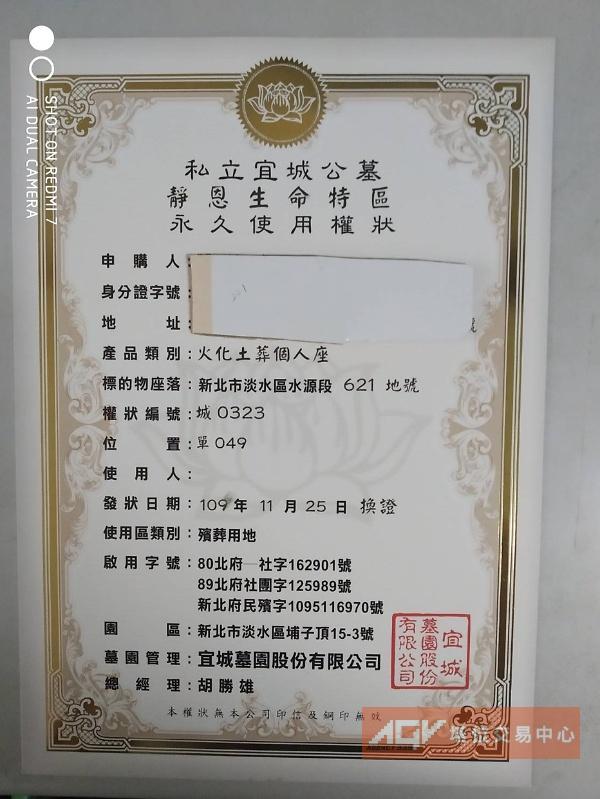 SHOT ON REDMI 7
AI DUAL CAMERA
私立宜城公墓
靜恩生命特區
永久使用權狀
申購人：
身分證字號：
地址：
產品類別：火化土葬個人座
標的物座落：新北市淡水區水源段 621 地號
權狀編號：城0323
位置：單049
使用人：
發狀日期：109年 11月25日 換證
使用區類別：殯葬用地
啟用字號：80北府一社字162901號
89北府社團字125989號
新北府民殯字1095116970號
園區：新北市淡水區埔子頂15-3號
墓園管理：宜城墓園股份有限公司
總經理：胡勝雄
宜城
墓園股份
有限公司
本權狀無本公司印信及鋼印無效
AGV
交易中心